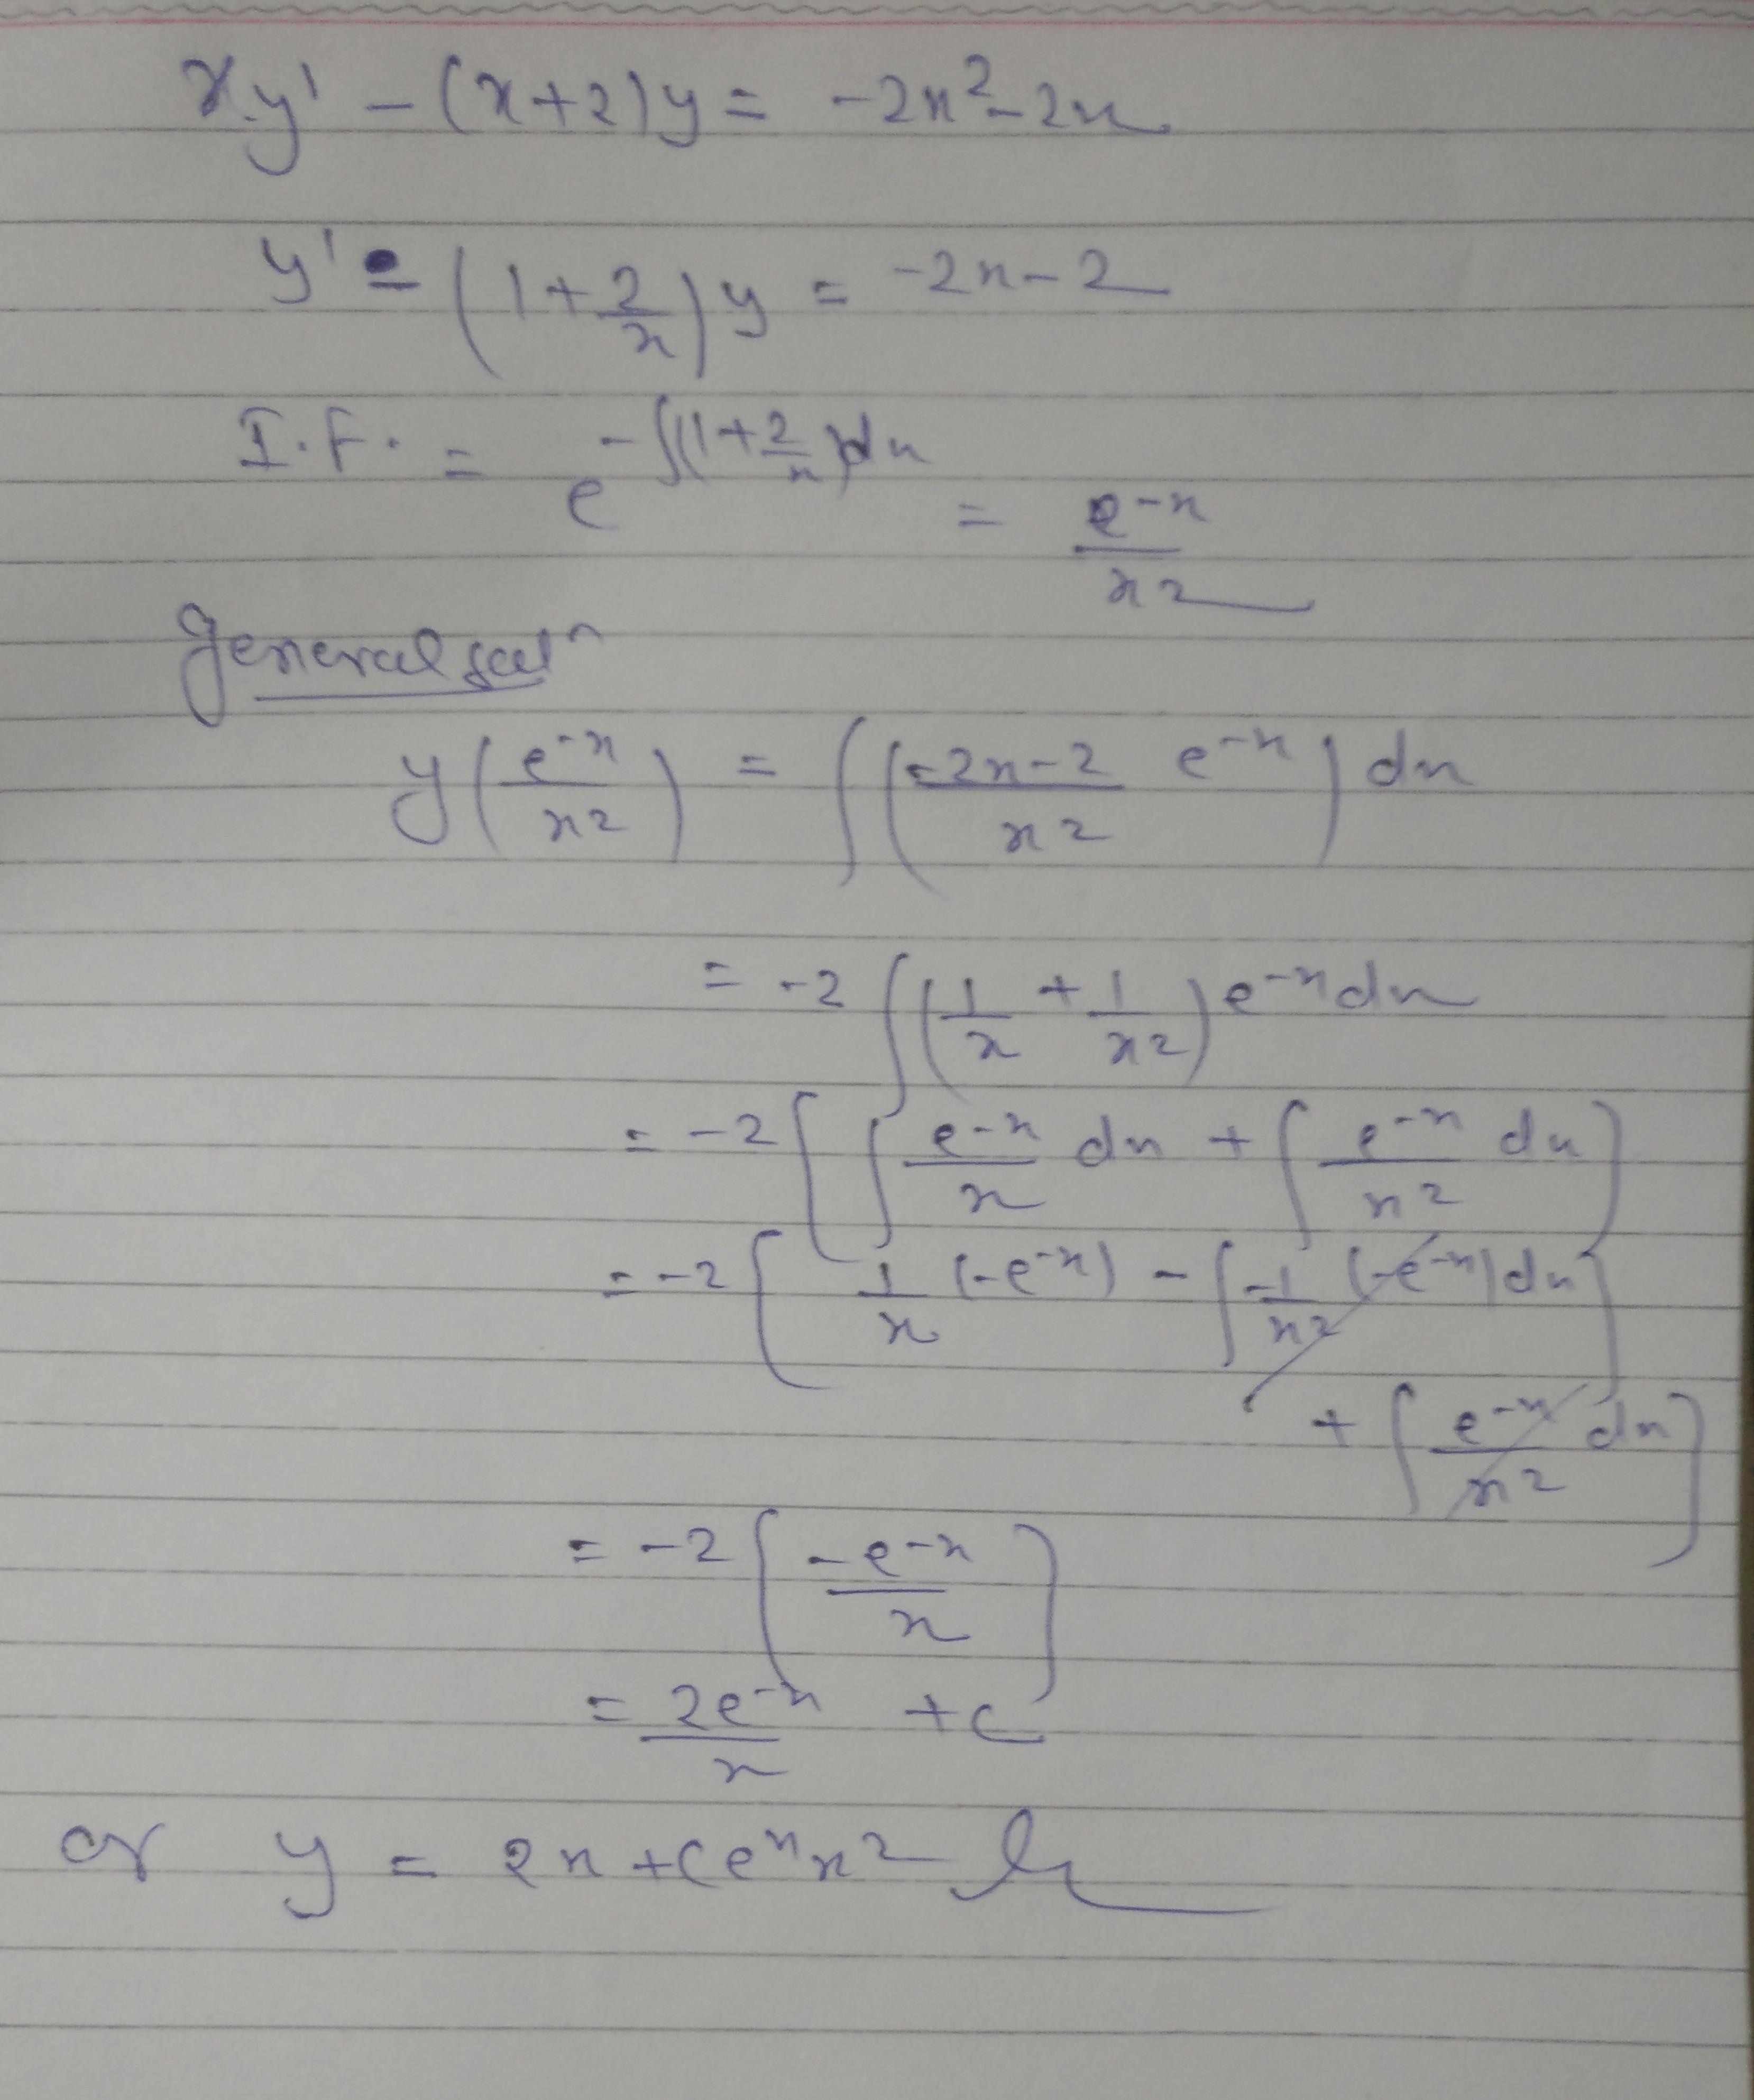 xy' - (x+2)y = -2x² - 2x
y' - (1 + 2/x) y = -2x - 2
I.F. = e^(-∫(1+2/x)dx) = e^-x / x²
General solⁿ
y (e^-x / x²) = ∫ ((-2x-2)/x² e^-x) dx
= -2 ∫ (1/x + 1/x²) e^-x dx
= -2 [ ∫ e^-x/x dx + ∫ e^-x/x² dx ]
= -2 [ 1/x (-e^-x) - ∫ -1/x² (-e^-x) dx }
+ ∫ e^-x/x² dx ]
= -2 [ -e^-x / x ]
= 2e^-x / x + c
or y = 2x + c e^x x²